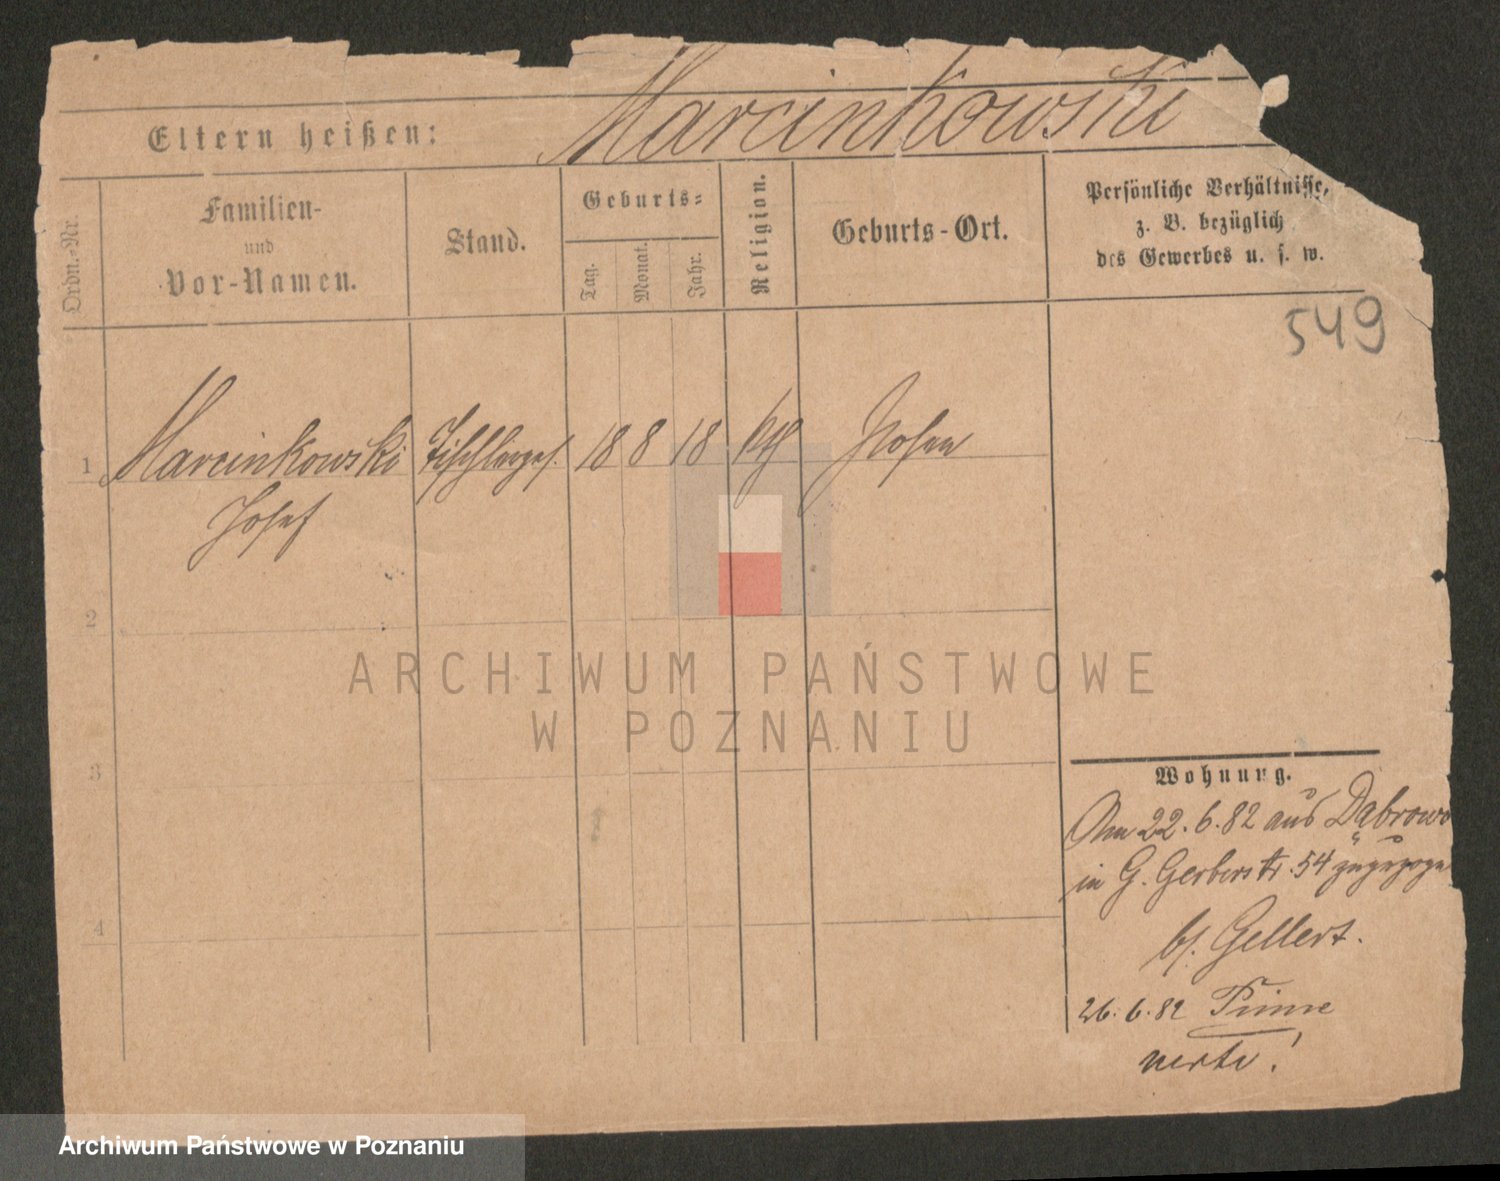 Marcinkowski
Eltern heißen:
Ordn.-Nr.
Familien-
und
Vor-Namen.
Stand.
Geburts-
Tag.
Monat.
Jahr.
Religion.
Geburts-Ort.
Persönliche Verhältnisse,
z. B. bezüglich
des Gewerbes u. s. w.
549
1 Marcinkowski Tischlerges. 18 8 18 kth Posen
Josef
2
3
4
ARCHIWUM PAŃSTWOWE
W POZNANIU
Wohnung.
Am 22.6.82 aus Dąbrowo
in G. Gerberstr. 54 zugezogen
bf. Gellert.
26.6.82 Pinne
verte!
Archiwum Państwowe w Poznaniu